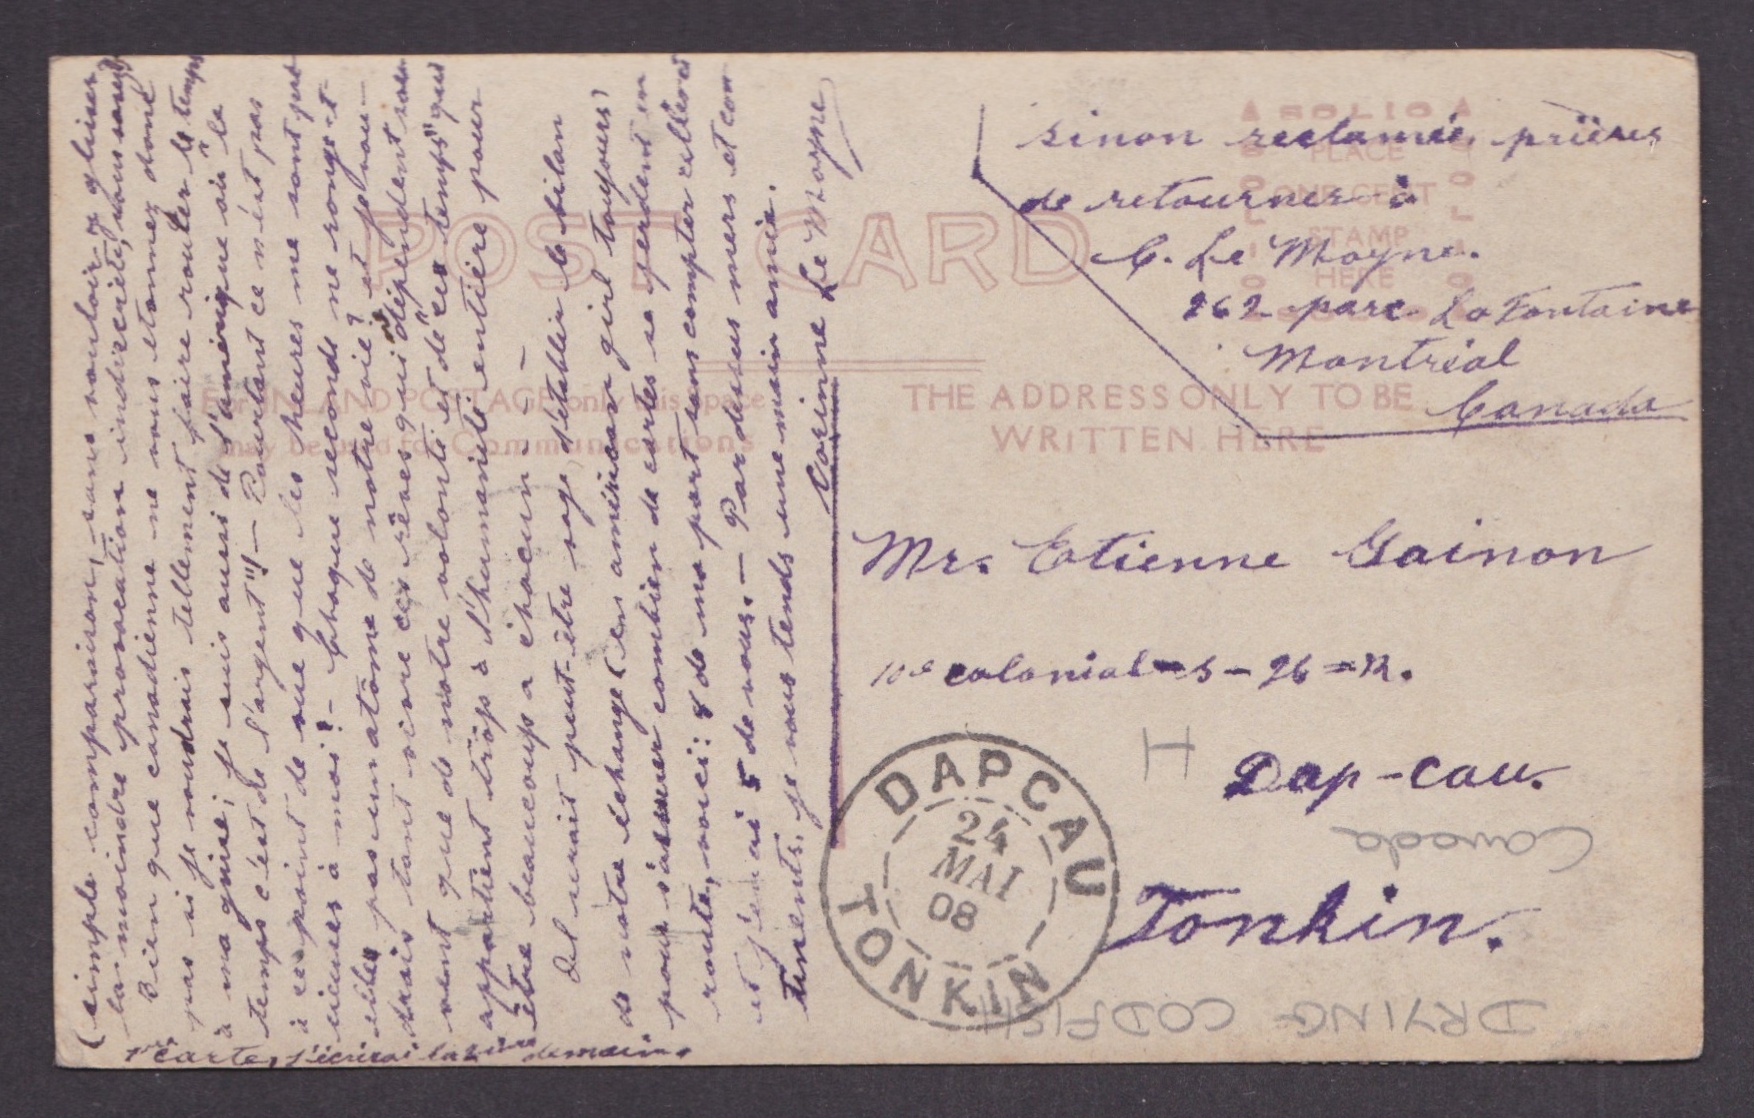 (simple comparaison, sans vouloir y glisser
la moindre provocation indirecte, vous savez)
Bien que canadienne ne vous étonnez donc
pas si je voudrais tellement faire rouler le temps
à ma guise; je suis aussi de l'amérique où "le
temps c'est de l'argent"!! — Pourtant ce n'est pas
à ce point de vue que les heures me sont pré
cieuses à moi! — Chaque seconde ne ronge-t
elle pas un atôme de notre vie? et je vou-
drais tant vivre ces rêves qui "dépendent sou
vent que de notre volonté et de "ce temps" qui
appartient trop à l'humanité entière pour
être beaucoup à chacun - - -
Il serait peut-être sage d'établir le bilan
de notre échange (en américan girl toujours)
pour s'assurer combien de cartes se perdent en
route, voici: 8 de ma part sans compter celles-ci
et j'en ai 5 de vous. — Par dessus mers et con
tinents, je vous tends une main amie.
Corinne Le Moyne
1ère carte, j'écrirai la 2ième demain.
POST CARD
For INLAND POSTAGE only this Space
may be used for Communications
THE ADDRESS ONLY TO BE
WRITTEN HERE
SOLIO
PLACE
ONE CENT
STAMP
HERE
SOLIO
sinon reclamée, prières
de retourner à
C. Le Moyne.
262 parc LaFontaine
Montréal
Canada
Mr. Etienne Gainon
10e colonial - 5 - 26 = R.
Dap-cau.
Tonkin.
DAPCAU
24
MAI
08
TONKIN
H
Canada
DRYING CODFISH